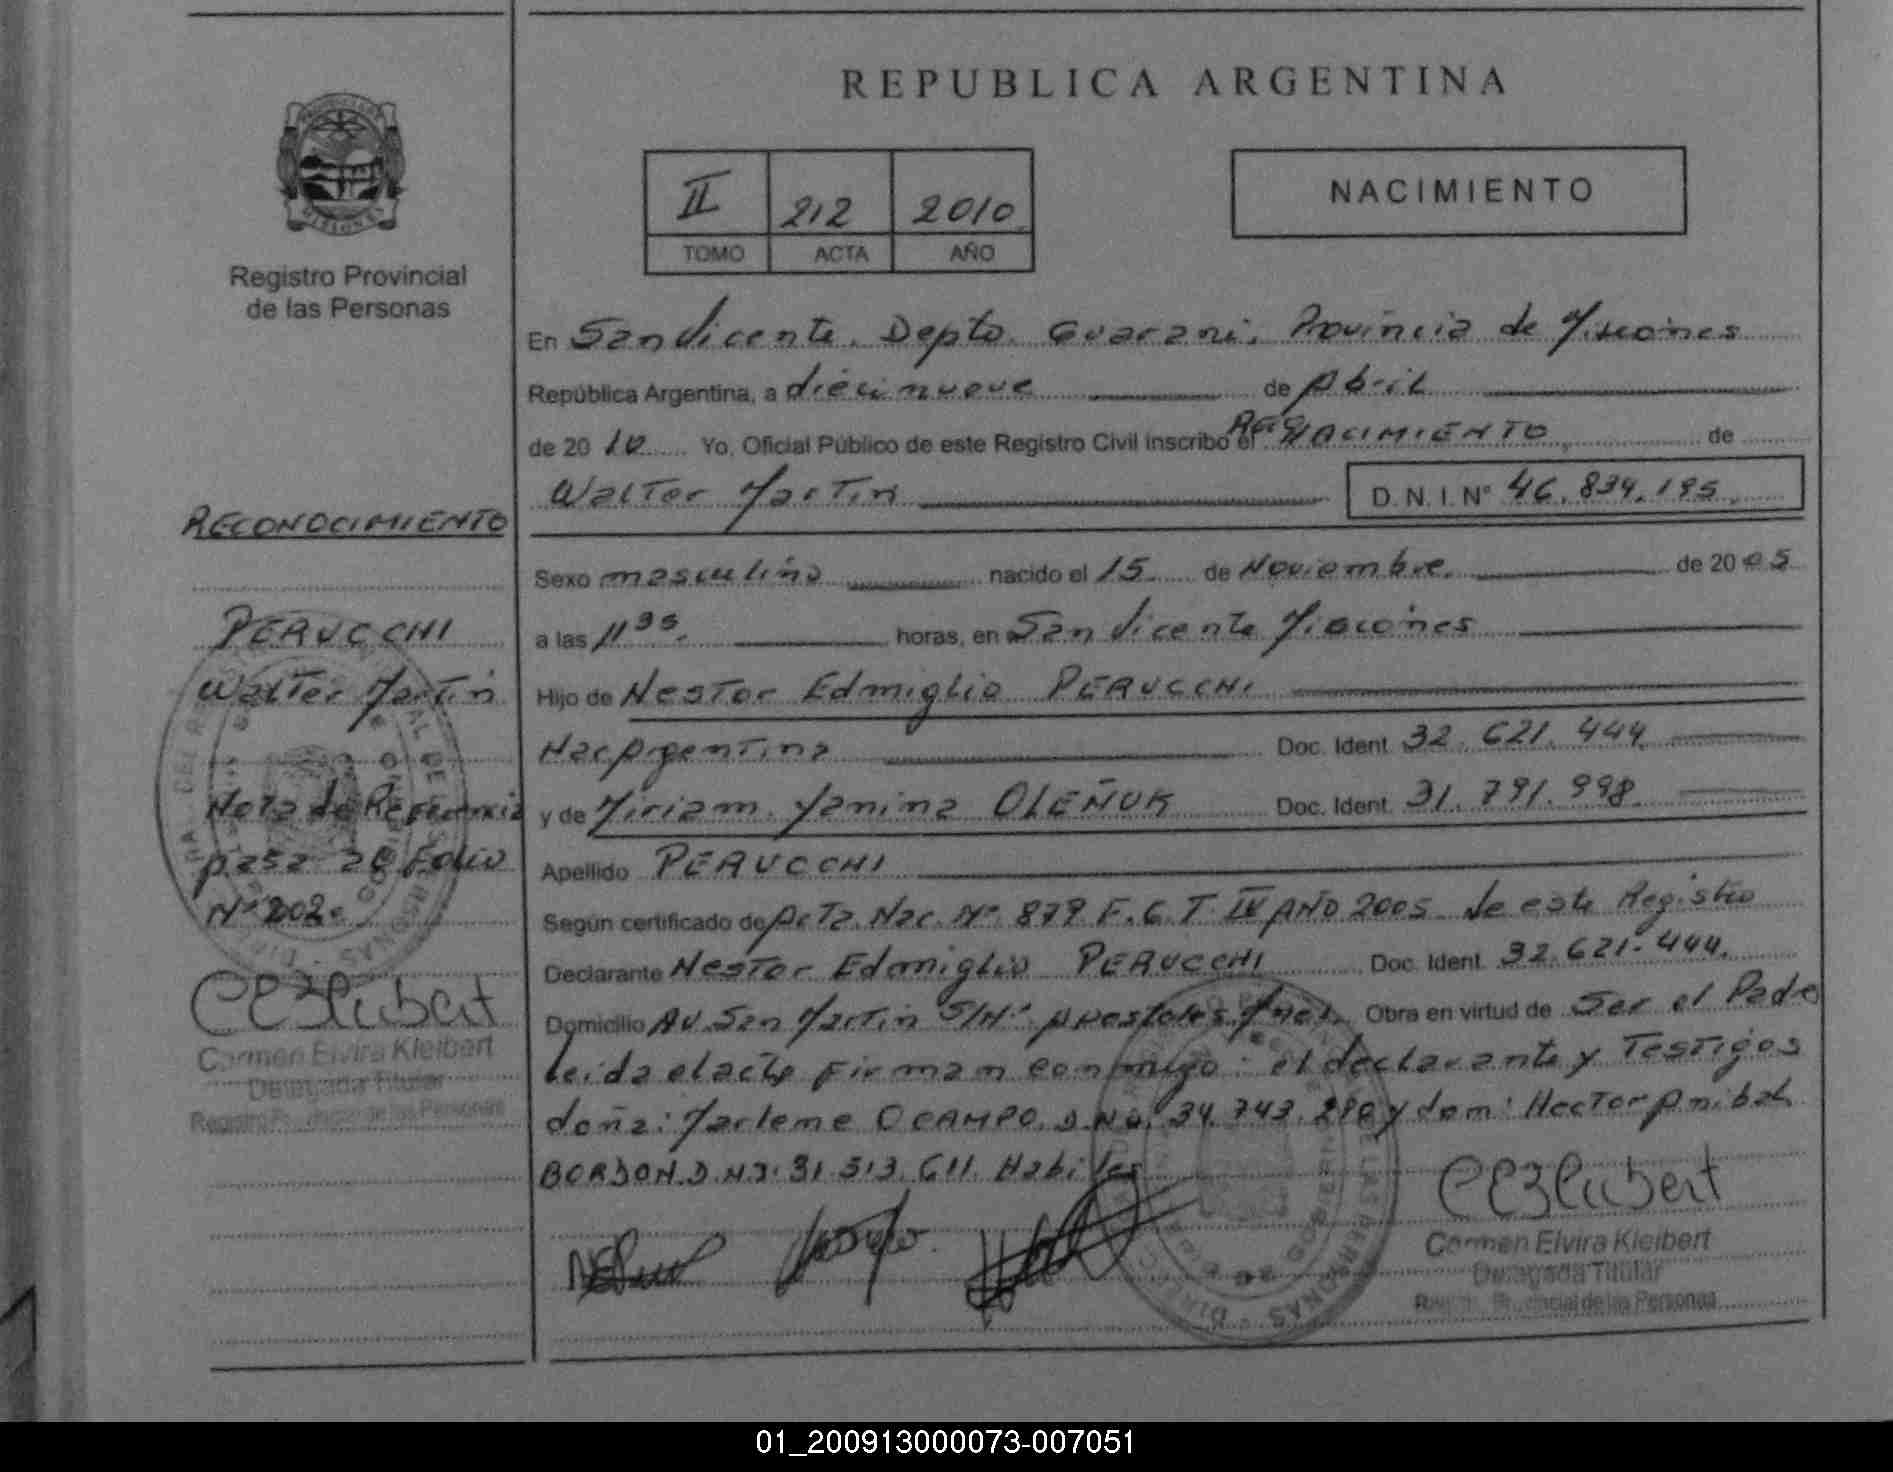 REPUBLICA ARGENTINA
II 212 2010
TOMO ACTA AÑO
NACIMIENTO
Registro Provincial
de las Personas
RECONOCIMIENTO
PERUCCHI
Walter Martin
Nota de Referencia
pasa al Folio
Nº 202
Carmen Elvira Kleibert
Delegada Titular
Registro Provincial de las Personas
En San Vicente, Depto. Guarani, Provincia de Misiones
República Argentina, a diecinueve de Abril
de 2010 Yo, Oficial Público de este Registro Civil inscribo el NACIMIENTO de
Walter Martin D.N.I. Nº 46.834.195
Sexo masculino nacido el 15 de Noviembre de 2005
a las 11 35 horas, en San Vicente Misiones
Hijo de Nestor Edmiglio PERUCCHI
Nac Argentina Doc. Ident. 32.621.444
y de Miriam Yanina OLEÑUK Doc. Ident. 31.791.998
Apellido PERUCCHI
Según certificado de Acta Nac. Nº 879 F.6 T IV AÑO 2005 de este Registro
Declarante Nestor Edmiglio PERUCCHI Doc. Ident. 32.621.444
Domicilio AV. San Martin S/Nº Apostoles Mnes. Obra en virtud de Ser el Padre
leida el acta firman conmigo: el declarante y Testigos
doña: Marlene OCAMPO D.N.I. 34.743.290 y dom: Hector Anibal
BORDON D.N.I. 31.313.611 Habiles
Carmen Elvira Kleibert
Delegada Titular
Registro Provincial de las Personas
01_200913000073-007051